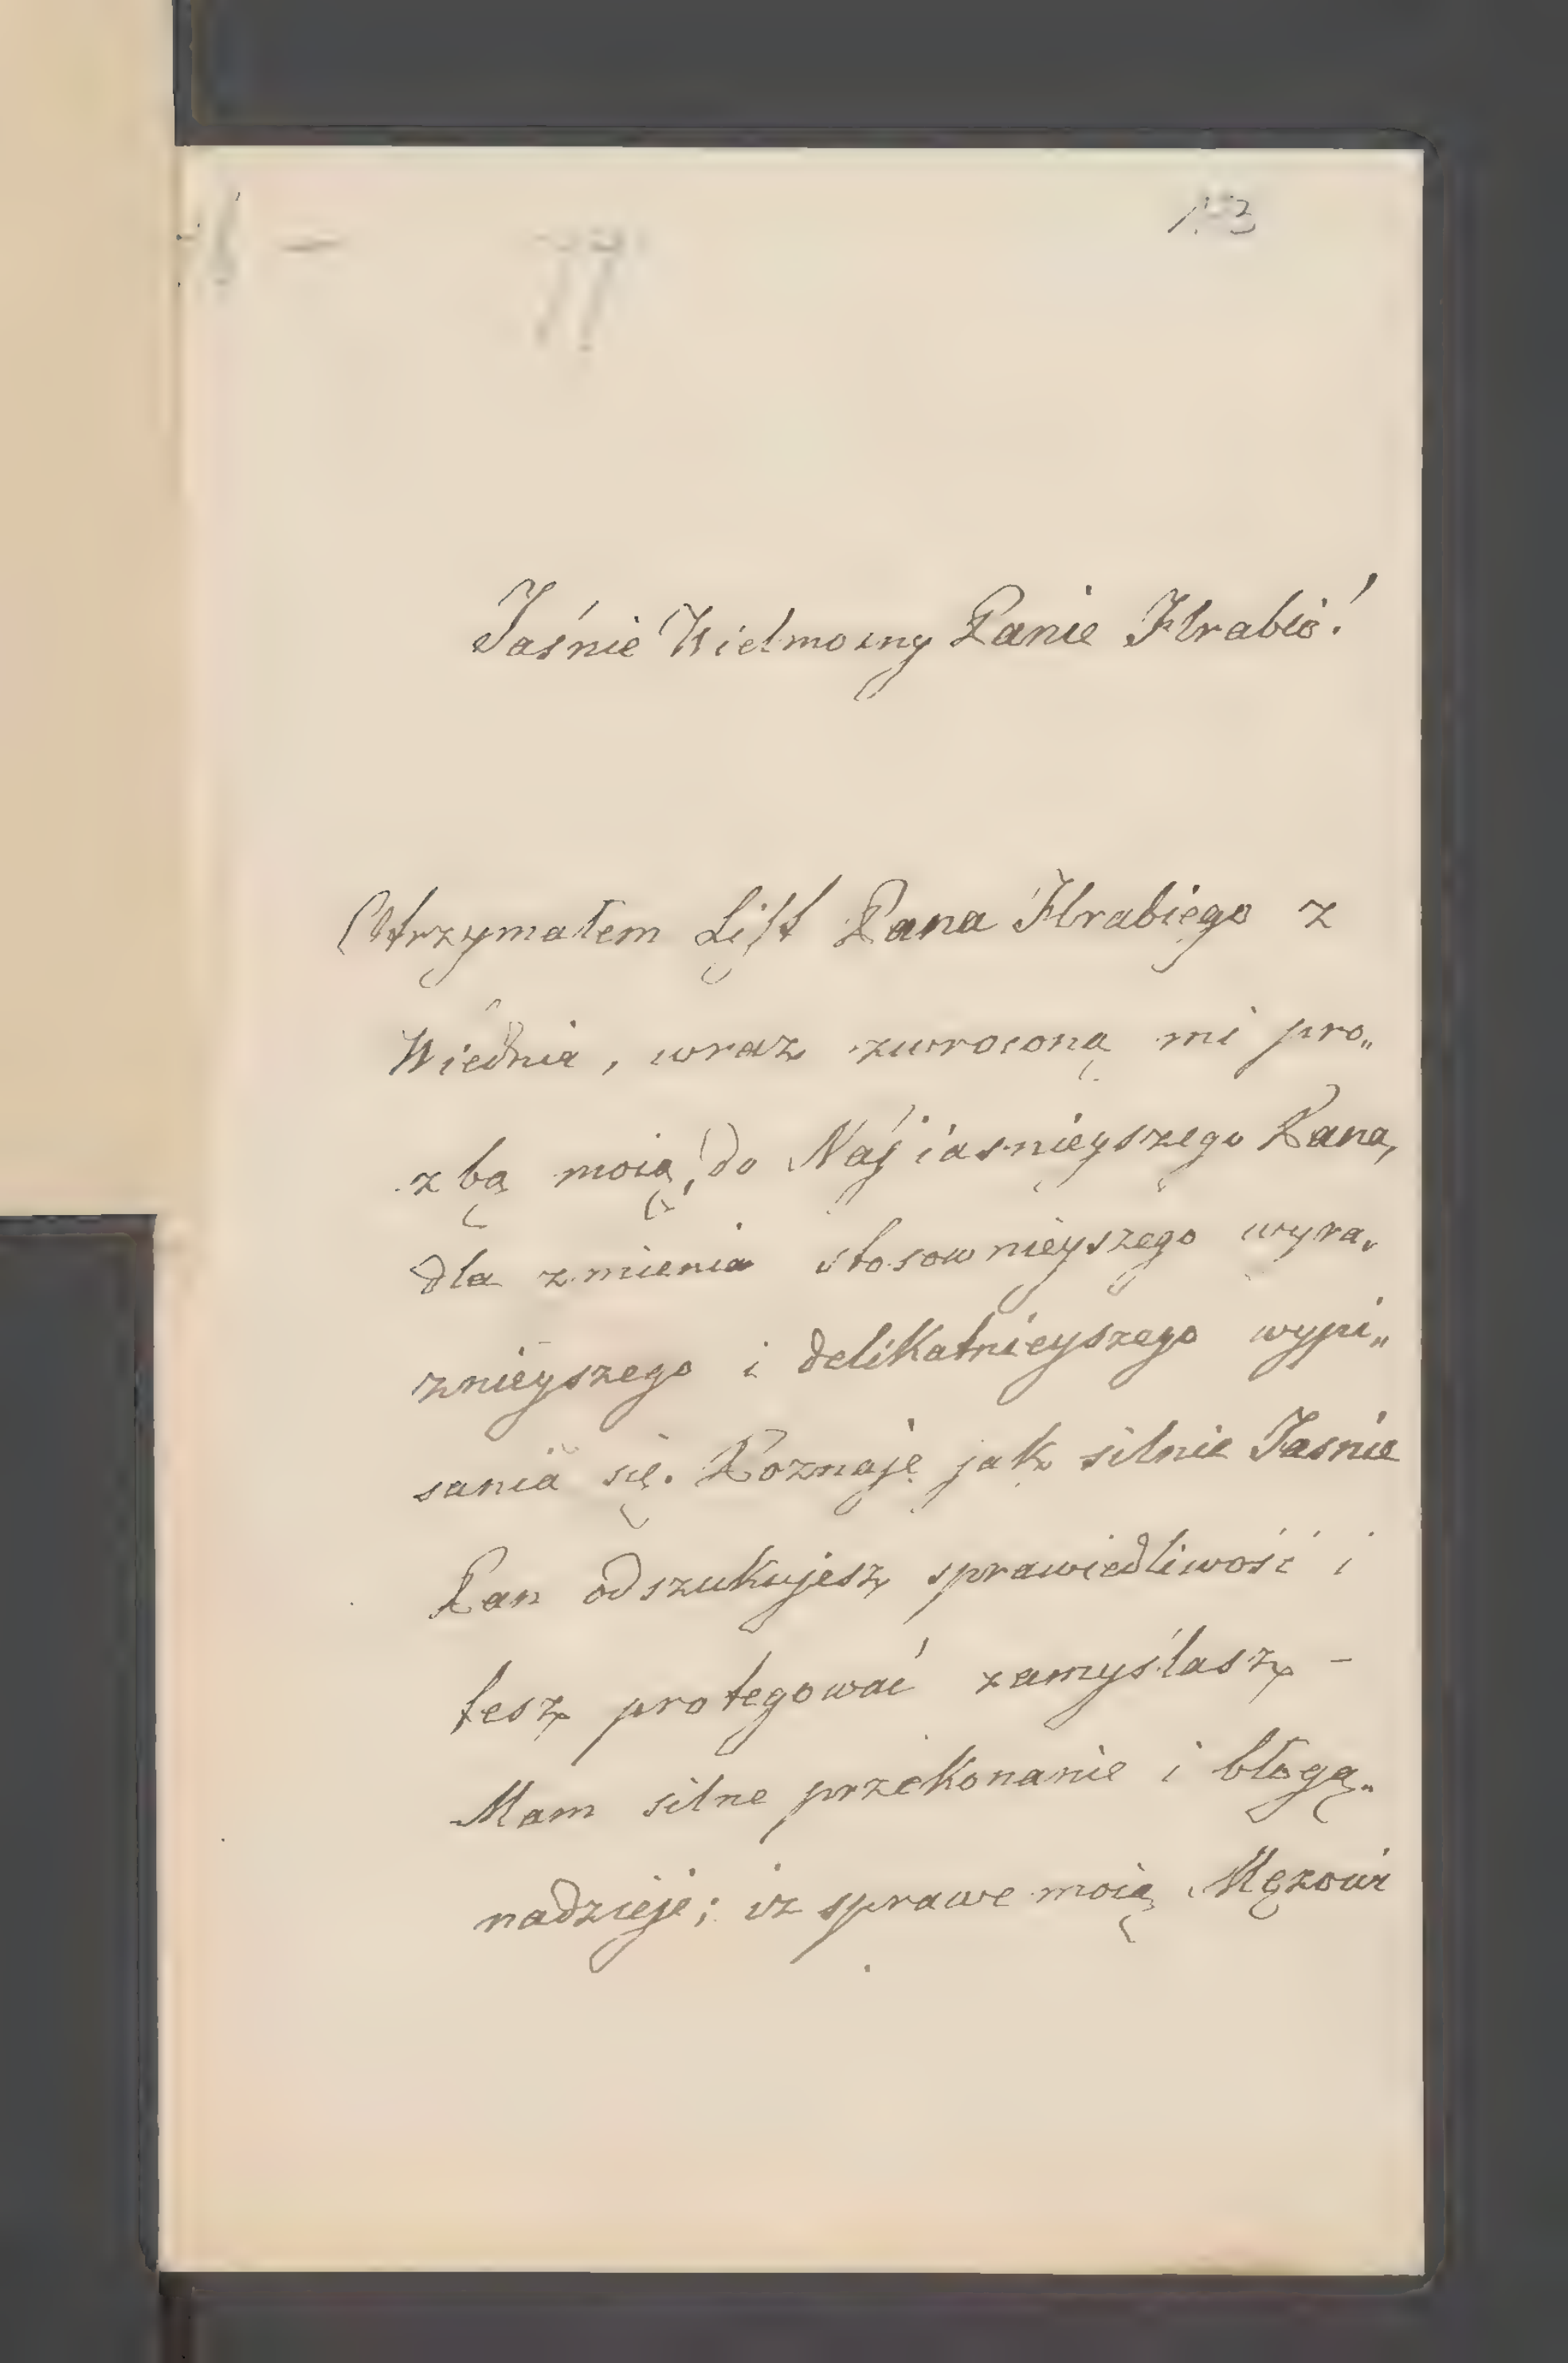 Jaśnie Wielmożny Panie Hrabio!
Otrzymałem List Pana Hrabiego z
Wiednia, wraz zwroconą mi pro„
zbą moią, do Najiasnieyszego Pana,
dla zmienia stosownieyszego wyra„
znieyszego i delikatnieyszego wypi„
sania się. Poznaję jak silnie Jasnie
Pan odszukujesz sprawiedliwość i
tesz protegować zamyślasz –
Mam silne przekonanie i błogą„
nadzieje; iz sprawe moią Mężowi